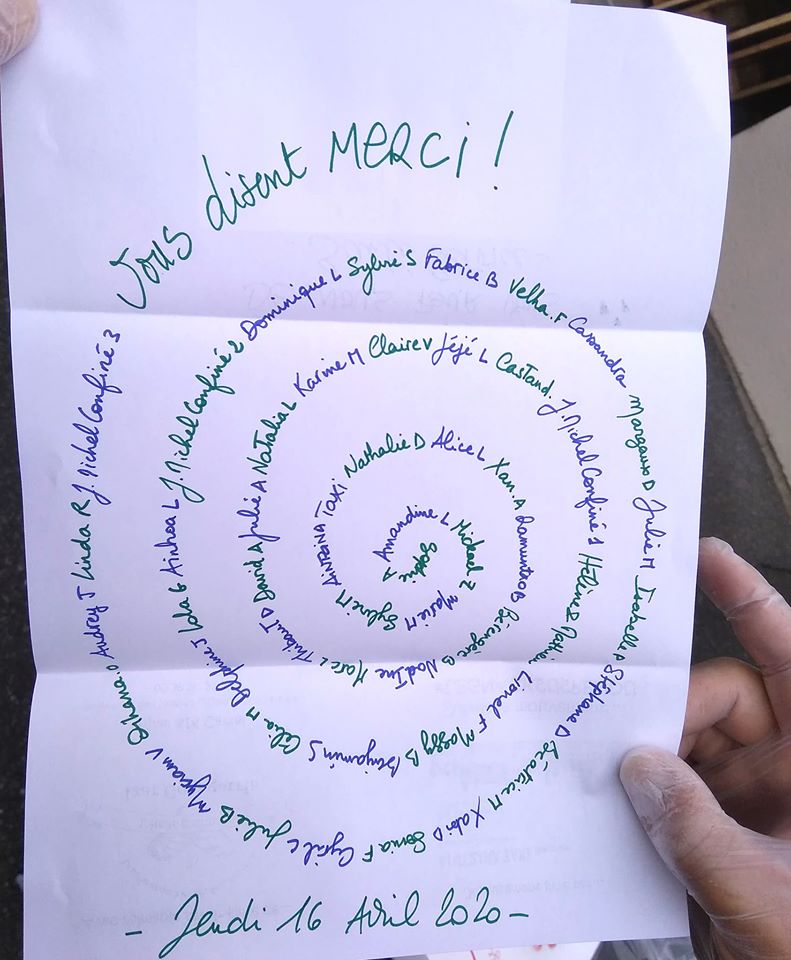 Sophie A Amandine L Mickael Z Marie M Sylvie M Taxi Nathalie D Alice L Xan. A Ramuntxo B Bérenger B Nadine Marc L Thibaut D David A Julie A Natalia L Karine M Claire V Jéjé L Castand. J. Michel Confiné 1 Hélène Lionel F Maggy B Benjamin S Célia M Delphine T Lola G Ainhoa L J. Michel Confiné 2 Dominique L Sylvie S Fabrice B Velha. F Cassandra Margaux D Julie M Isabelle P Stéphane D Béatrice M Xabi D Sonia F Cyril C Julie B Myriam V Audrey T Linda R J. Michel Confiné 3
Vous disent MERCI !
- Jeudi 16 Avril 2020 -